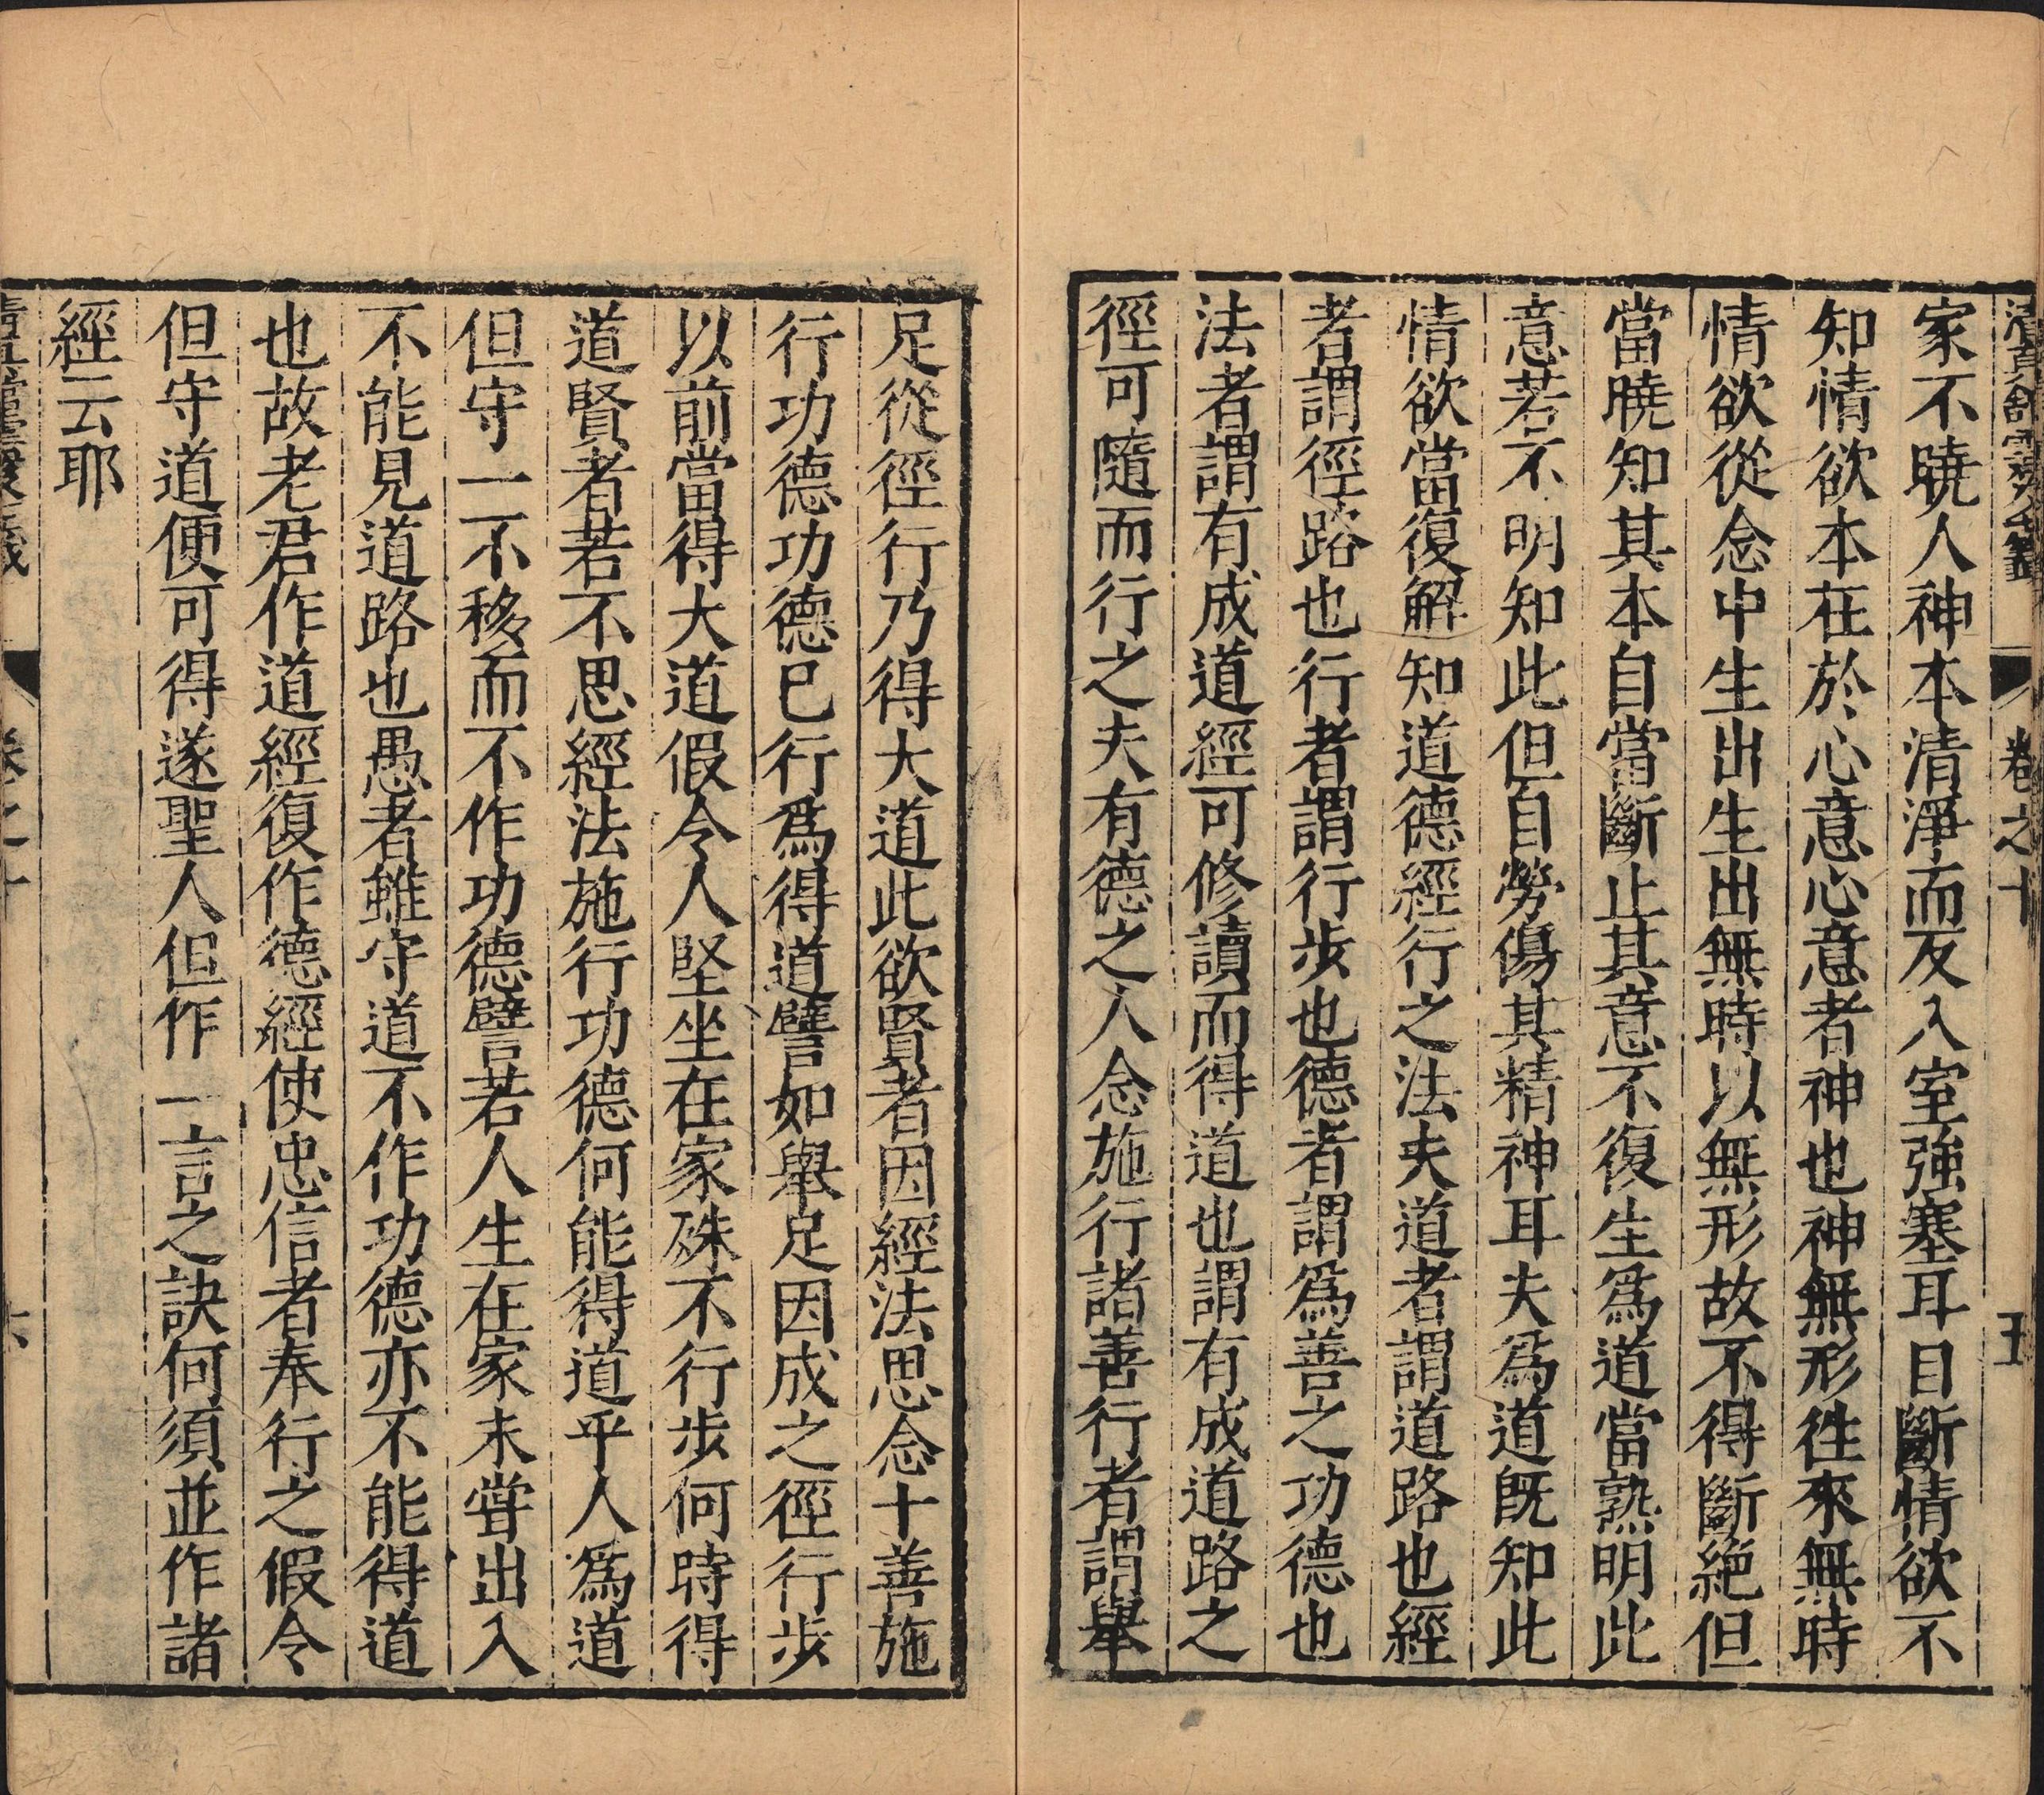 卷之十
五
家不曉人神本清淨而反入室強塞耳目斷情欲不
知情欲本在於心意心意者神也神無形徃來無時
情欲從念中生出生出無時以無形故不得斷絶但
當曉知其本自當斷止其意不復生爲道當熟明此
意若不明知此但自勞傷其精神耳夫爲道旣知此
情欲當復解知道德經行之法夫道者謂道路也經
者謂徑路也行者謂行步也德者謂爲善之功德也
法者謂有成道經可修讀而得道也謂有成道路之
徑可隨而行之夫有德之人念施行諸善行者謂舉
足從徑行乃得大道此欲賢者因經法思念十善施
行功德功德已行爲得道譬如舉足因成之徑行步
以前當得大道假令人堅坐在家硃不行步何時得
道賢者若不思經法施行功德何能得道乎人爲道
但守一不移而不作功德譬若人生在家未甞出入
不能見道路也愚者雖守道不作功德亦不能得道
也故老君作道經復作德經使忠信者奉行之假令
但守道便可得遂聖人但作一言之訣何須並作諸
經云耶